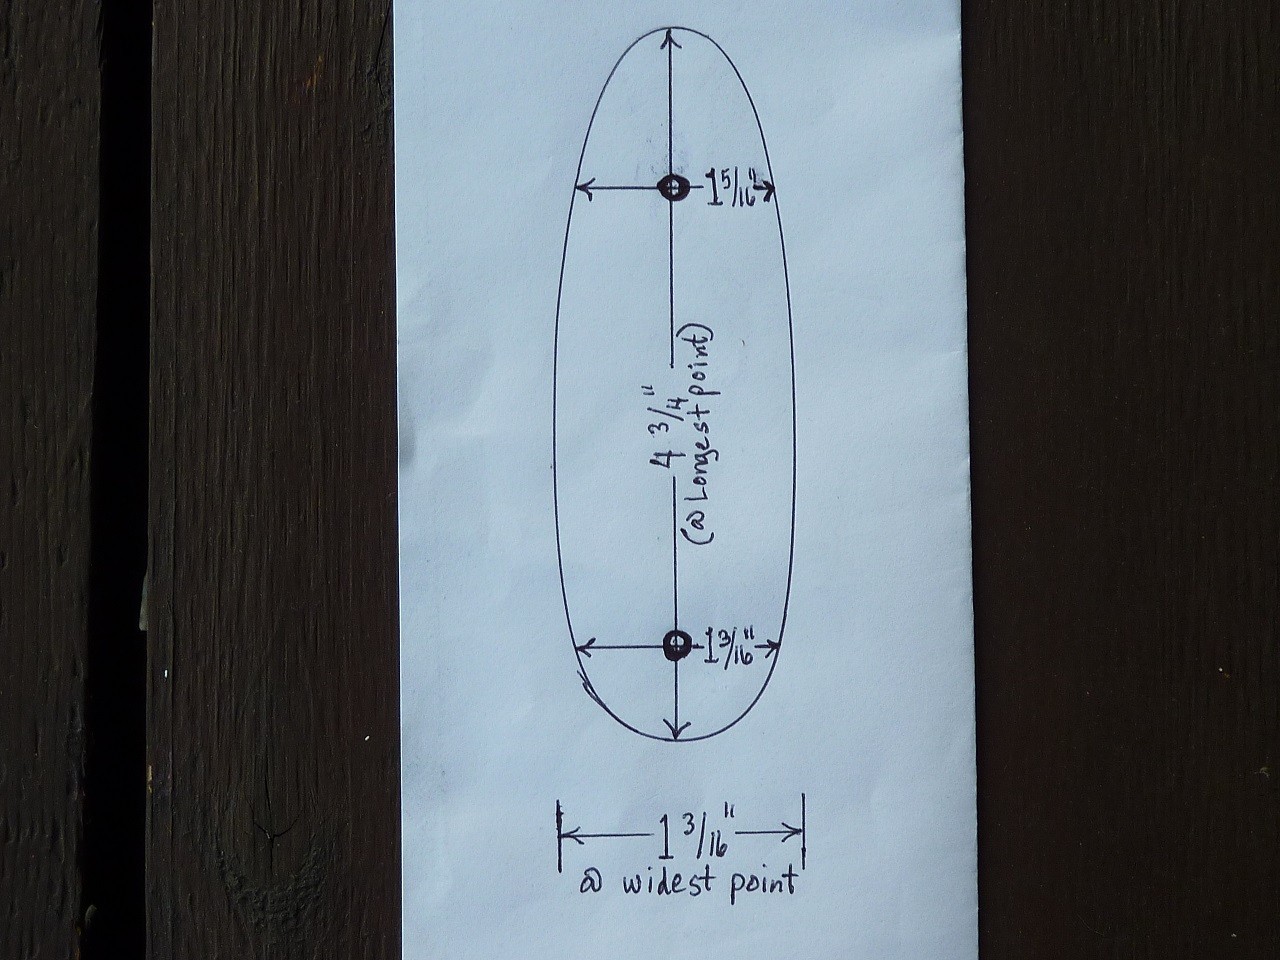 1 5/16"
4 3/4"
(@ Longest point)
1 3/16"
1 3/16"
@ widest point